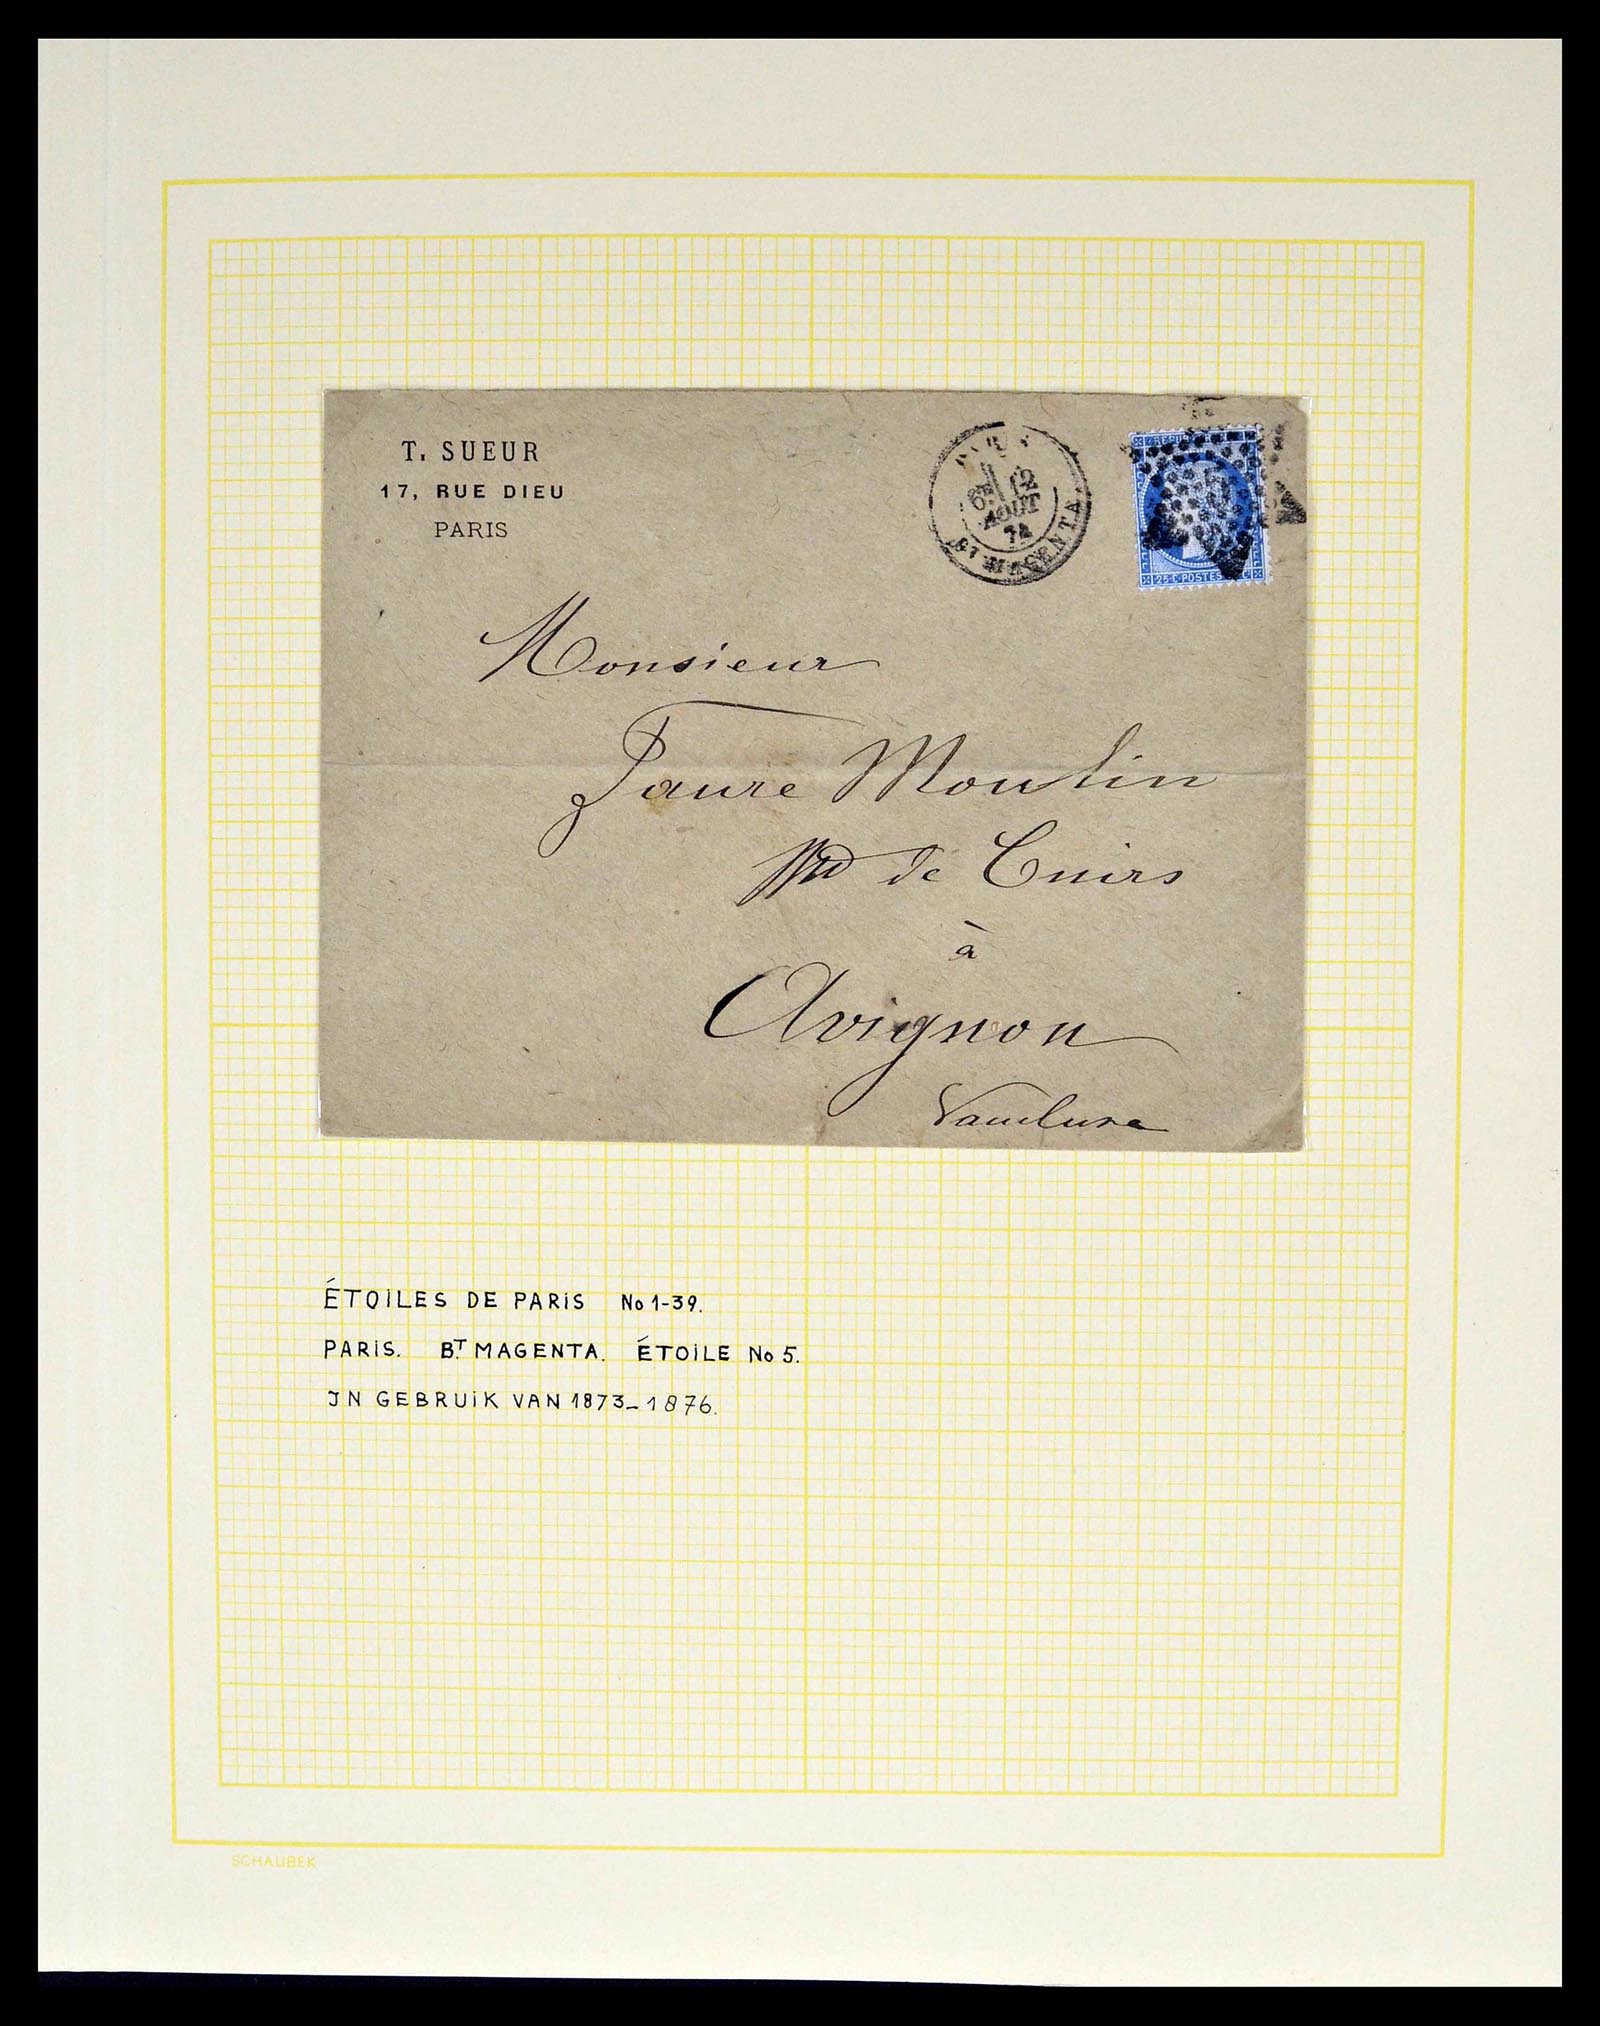 T. SUEUR
17, RUE DIEU
PARIS
6E 12
AOUT
74
MAGENTA
25 C. POSTES
Monsieur
Faure Moulin
Md de Cuirs
à
Avignon
Vaucluse
ÉTOILES DE PARIS No 1-39.
PARIS. BT. MAGENTA. ÉTOILE No 5.
IN GEBRUIK VAN 1873-1876.
SCHAUBEK